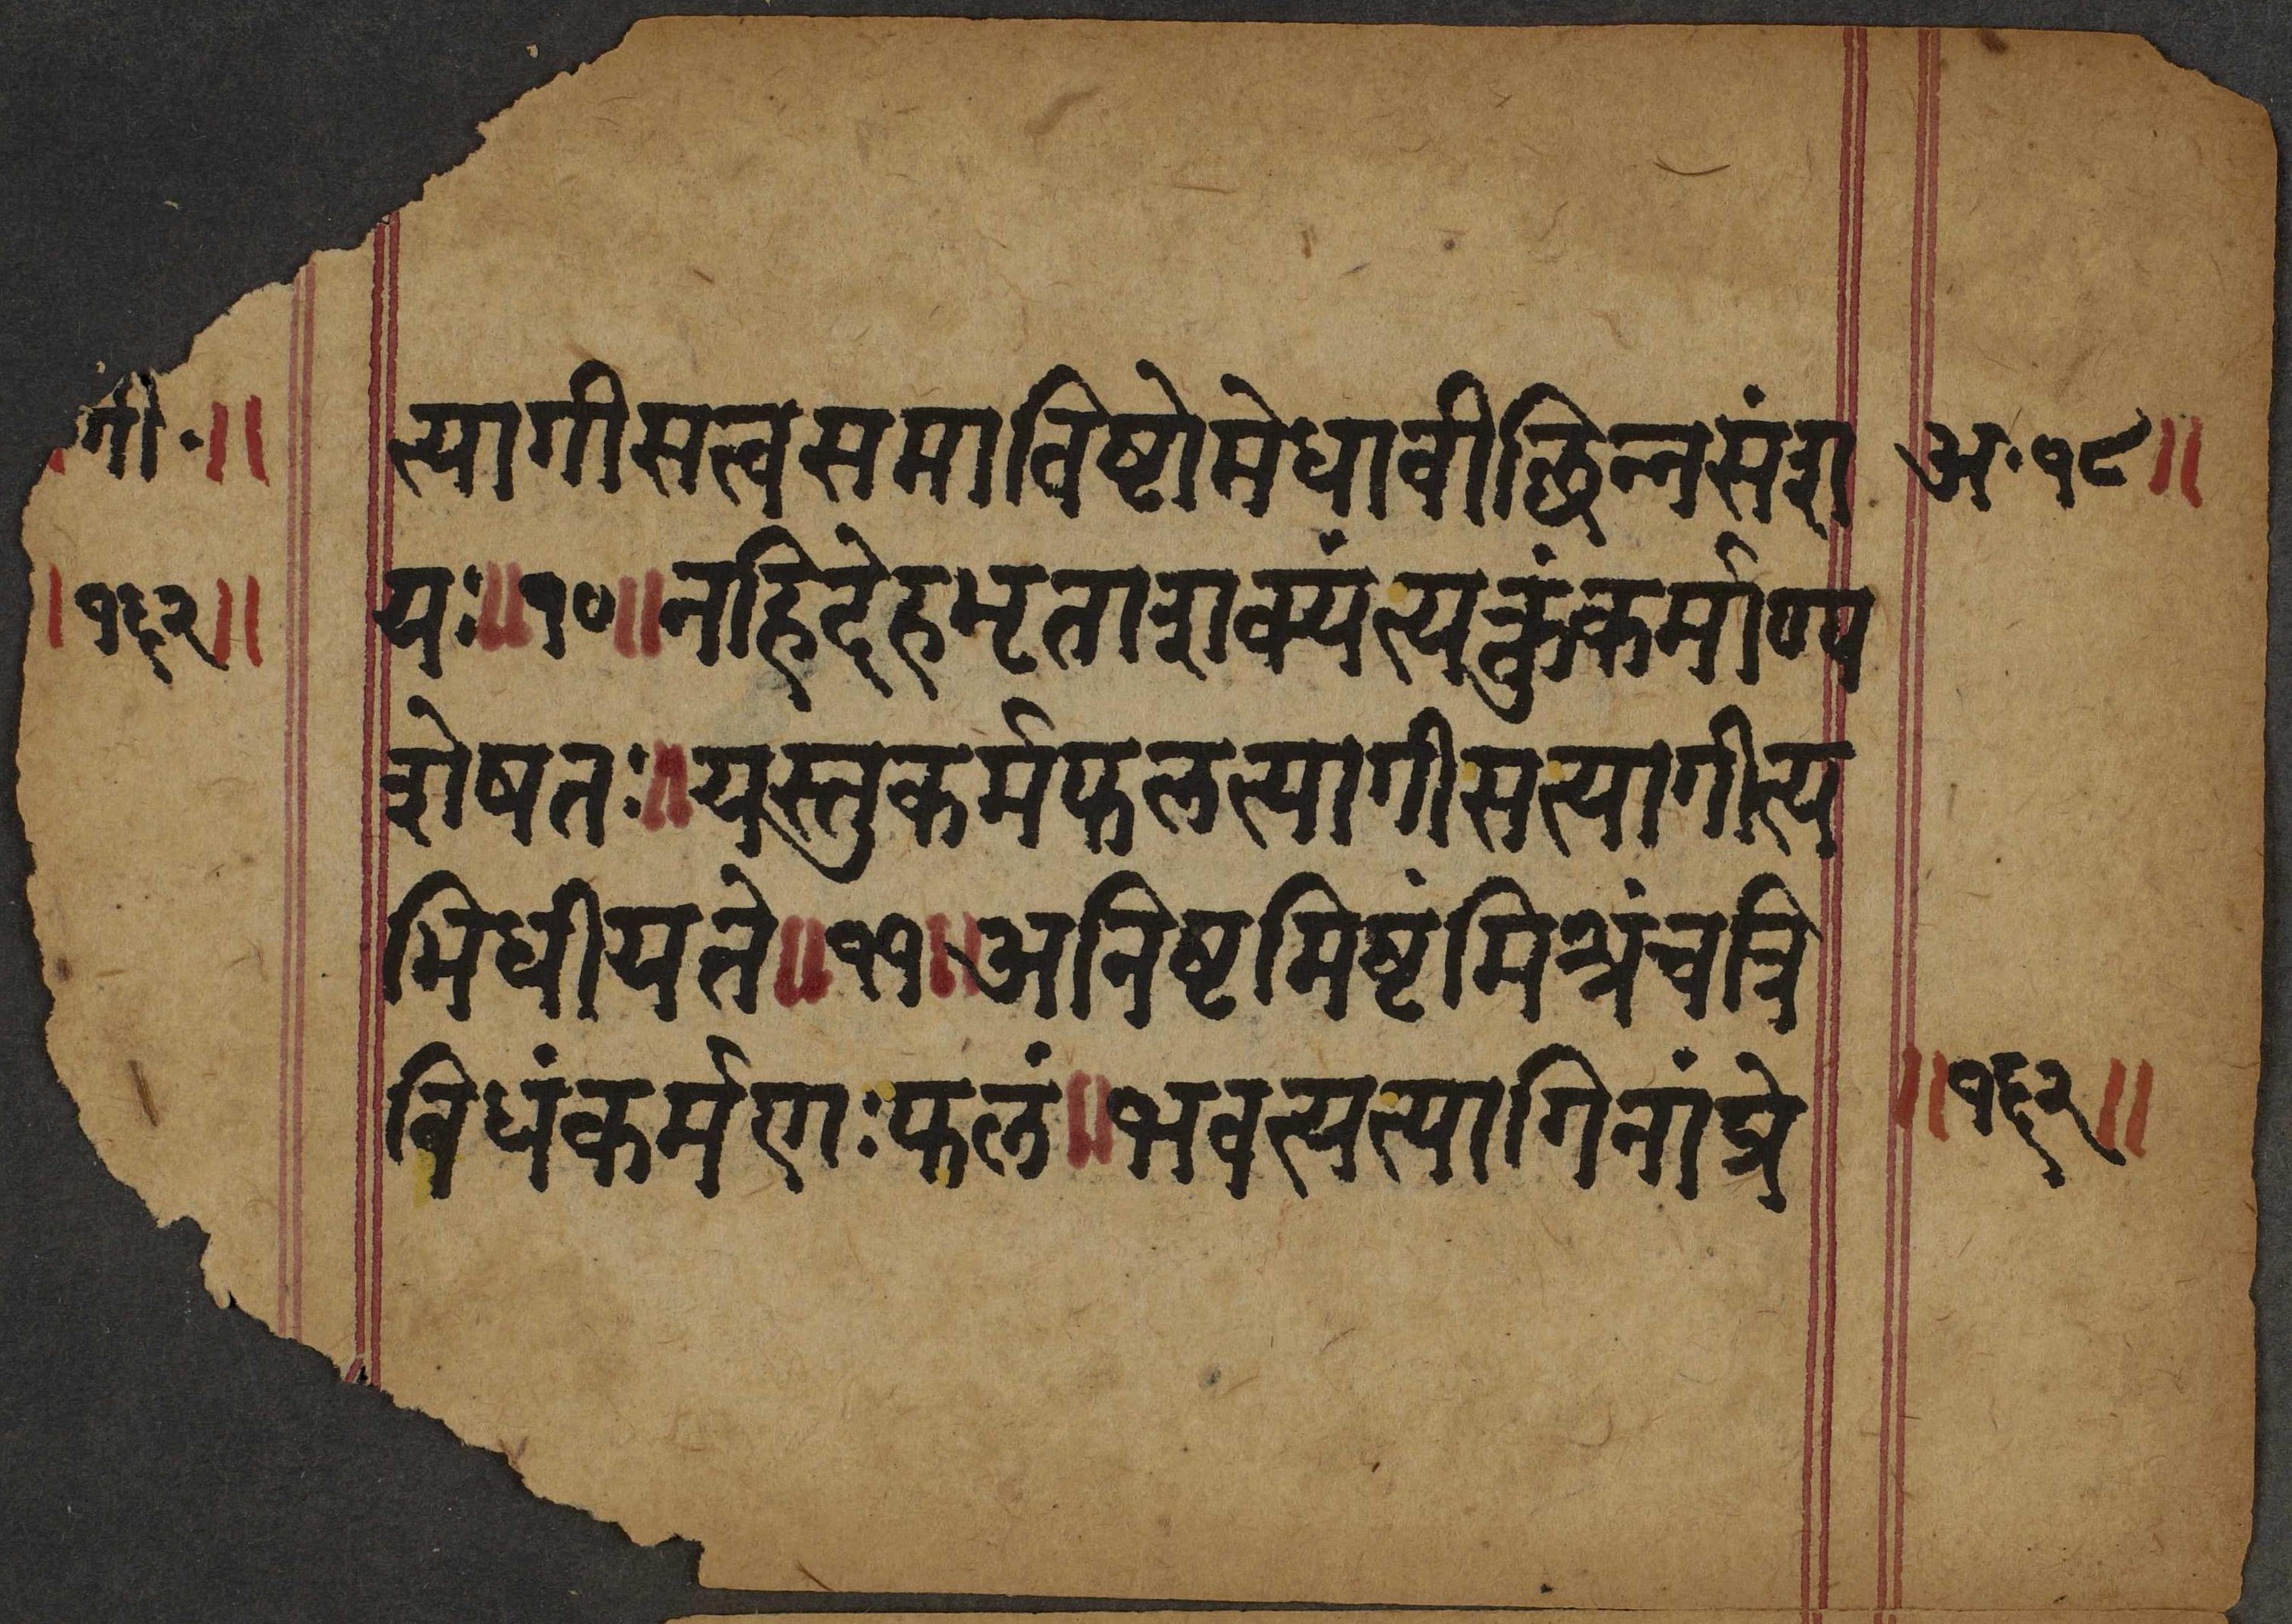 गी॰॥ त्यागीसत्वसमाविष्टोमेधावीछिन्नसंश अ॰१८॥
।१६२॥ यः॥१०॥नहिदेहभृताशक्यंत्यक्तुंकर्माण्य
शेषतः॥यस्तुकर्मफलत्यागीसत्यागीत्य
भिधीयते॥११॥अनिष्टमिष्टंमिश्रंचत्रि
विधंकर्मणःफलं॥भवत्यत्यागिनांप्रे ॥१६२॥